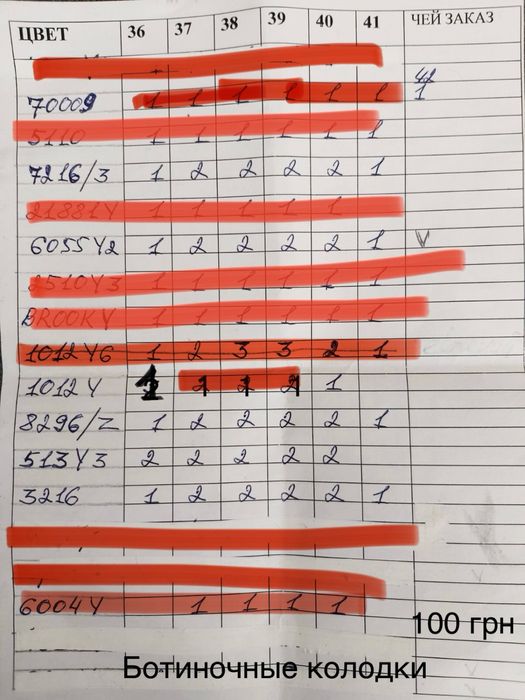 ЦВЕТ 36 37 38 39 40 41 ЧЕЙ ЗАКАЗ
42
70009 1 1 1 1 1 1 1
5110 1 1 1 1 1 1
7216/3 1 2 2 2 2 1
21881Y 1 1 1 1 1
6055Y2 1 2 2 2 2 1 V
2510Y3 1 1 1 1 1 1
BROOKY 1 1 1 1 1 1
1012Y6 1 2 3 3 2 1
1012Y 1 1 1 1 1
8296/Z 1 2 2 2 2 1
513Y3 2 2 2 2 2
3216 1 2 2 2 2 1
6004Y 1 1 1 1
100 грн
Ботиночные колодки